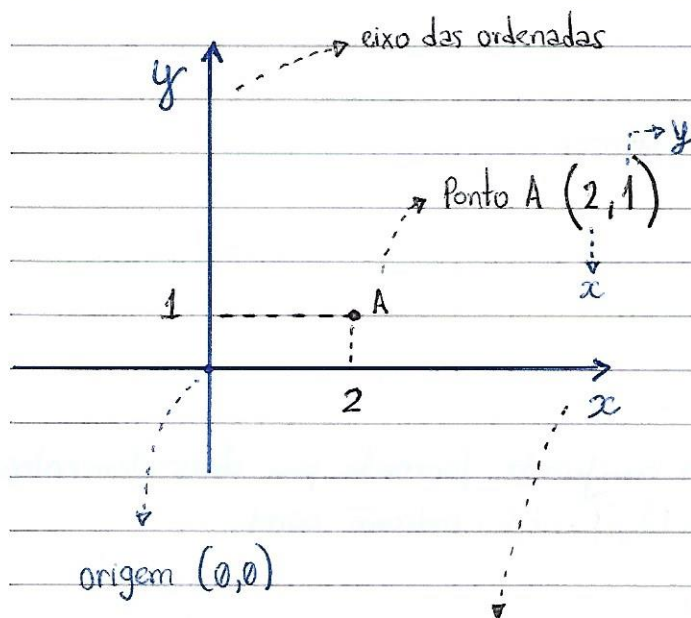 eixo das ordenadas
y
y
Ponto A (2,1)
x
1
A
2
x
origem (0,0)